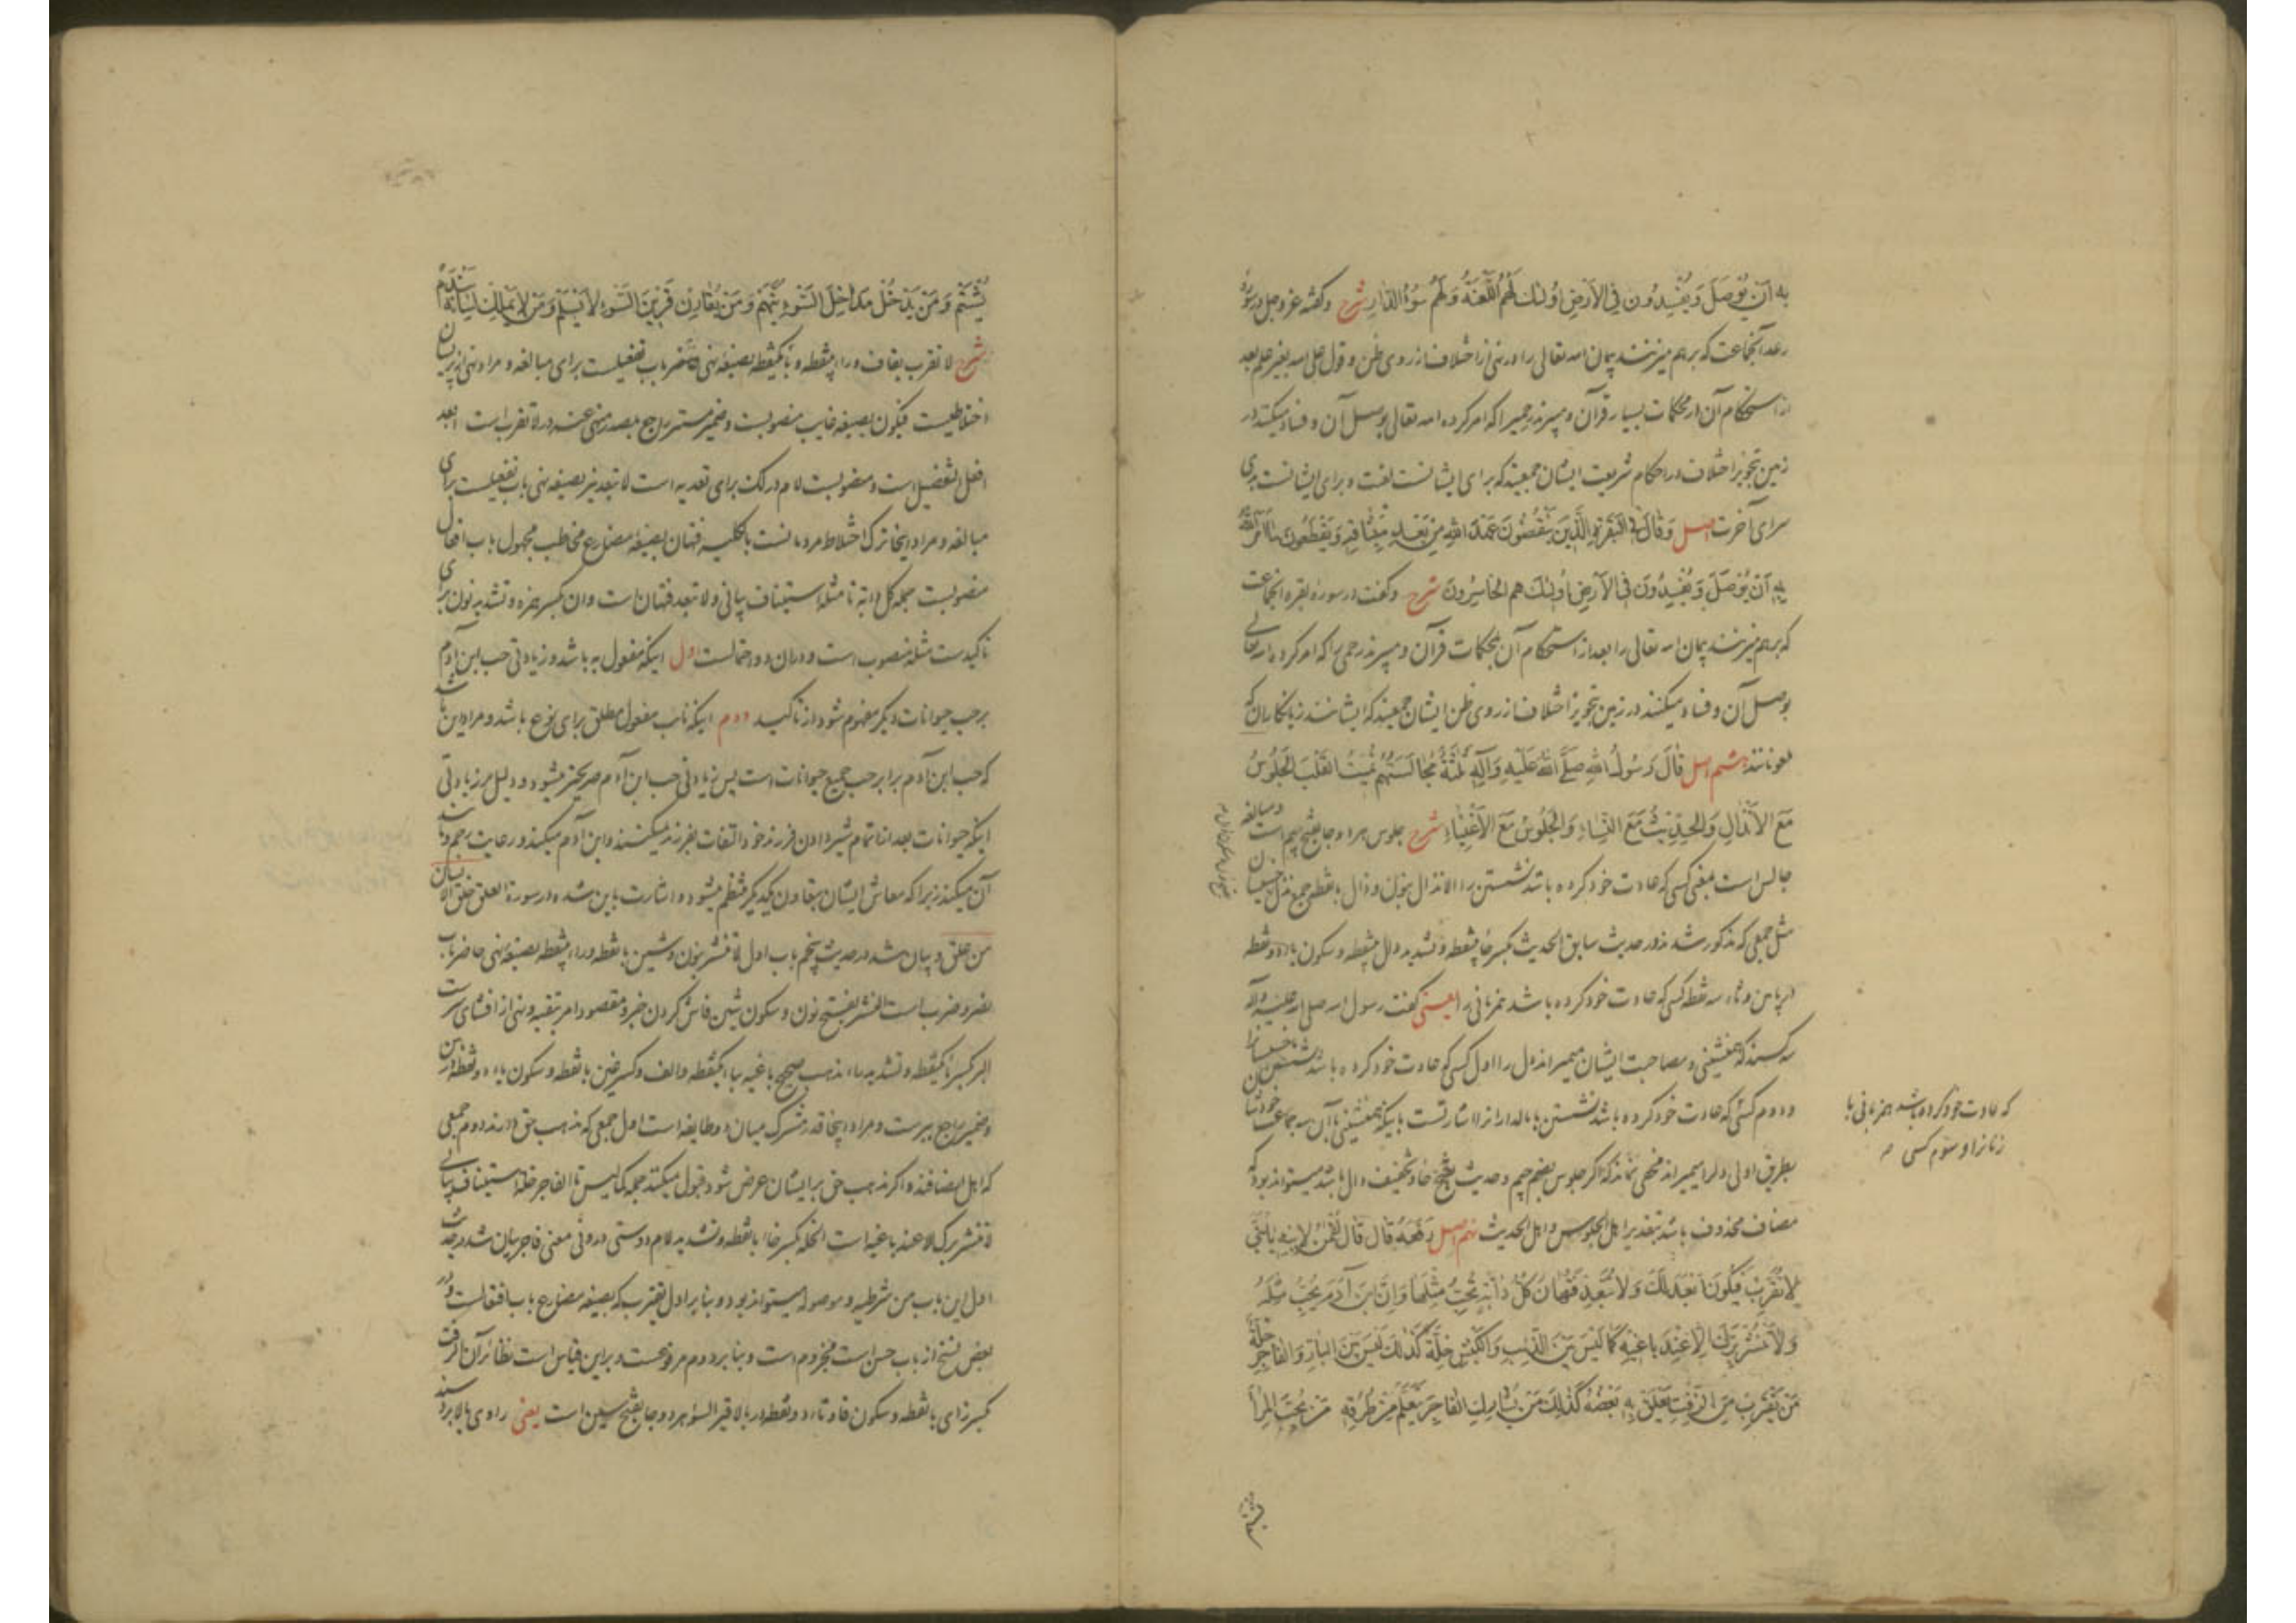 به اَن یُوصَلَ وَیُفْسِدُونَ فِی الاَرضِ اُولئِکَ لَهُمُ اللَّعْنَهُ وَلَهُمْ سُوءُ الدّارِ شرح وگفته عزوجل در سوره
رعد آنجماعت که برهم میزنند پیمان الله تعالی را در نهی از اختلاف از روی ظن و قول علی الله بغیر علم بعد
از استحکام آن در محکمات بسیار قرآن و میبرند چیزرا که امر کرده الله تعالی بوصل آن و فساد میکنند در
زمین بتجویز اختلاف در احکام شریعت ایشان جمعیند که برای ایشانست لعنت و برای ایشانست بدی
سرای آخرت اصل وَقالَ فِی البَقَرَةِ الَّذِینَ یَنْقُضُونَ عَهْدَ اللهِ مِنْ بَعْدِ مِیثاقِهِ وَیَقْطَعُونَ ما اَمَرَ اللهُ
بِهِ اَنْ یُوصَلَ وَیُفْسِدُونَ فِی الاَرضِ اُولئِکَ هم الخاسِرُونَ شرح وگفت در سوره بقره آنجماعت
که برهم میزنند پیمان الله تعالی را بعد از استحکام آن بمحکمات قرآن و میبرند رحمی را که امر کرده الله تعالی
بوصل آن و فساد میکنند در زمین بتجویز اختلاف از روی ظن ایشان جمعیند که ایشانند زیانکاران که
ملعونانند هشتم اصل قالَ رَسُولُ اللهِ صَلَّی اللهُ عَلَیهِ وَآلِهِ ثَلثَةٌ مُجالَسَتُهُمْ تُمِیتُ القَلْبَ الجُلُوسُ
مَعَ الاَنْذالِ وَالحَدِیثُ مَعَ النِّساءِ وَالجُلُوسُ مَعَ الاَغْنِیاءِ شرح جلوس هر دو جا بفتح جیم است و مبالغه
جالس است بمعنی کسی که عادت خود کرده باشد نشستن را الانذال بنون و ذال بانقطه جمع نذل خسیسان
مثل جمعی که مذکور شدند در حدیث سابق الحدیث بکسر حاء بینقطه و تشدید دال بینقطه و سکون یاء دو نقطه
در پایین و ثاء سه نقطه کسی که عادت خود کرده باشد همزبانی را یعنی گفت رسول الله صلی الله علیه وآله
سه کسند که همنشینی و مصاحبت ایشان میمیراند دل را اول کسی که عادت خود کرده باشد نشستن با خسیسانرا
که عادت خود کرده باشد همزبانی با
زنانرا و سوّم کسی
ودوم کسی که عادت خود کرده باشد نشستن با مالدارانرا اشارتست باینکه همنشینی با آن سه جماعت
بطریق اولی دلرا میمیراند مخفی نماند که اگر جلوس بضم جیم و حدیث بفتح حاء و تخفیف دال باشد میتواند بود که
مضاف محذوف باشد بتقدیر اهل الجلوس و اهل الحدیث نهم اصل رَفَعَهُ قالَ قالَ لُقْمنُ لابْنِهِ یا بُنَیَّ
لا تَقْرَبْ فَیَکُونَ اَبْعَدَ لَکَ وَلا تَبْعُدْ فَتُهانَ کُلُّ دابَّةٍ تُحِبُّ مِثْلَها وَاِنَّ ابْنَ آدَمَ یُحِبُّ مِثْلَهُ
وَلا تَنْشُرْ بِزَّکَ اِلاّ عِنْدَ باغِیهِ کَما لَیْسَ بَیْنَ الذِّئْبِ وَالکَبْشِ خُلَّةٌ کَذلِکَ لَیسَ بَیْنَ البارِّ وَالفاجِرِ خُلَّةٌ
مَنْ یَقْتَرِبْ مِنَ الزِّفْتِ یَعْلَقْ بِهِ بَعْضُهُ کَذلِکَ مَنْ یُشارِکِ الفاجِرَ یَتَعَلَّمْ مِنْ طُرُقِهِ مَنْ یُحِبَّ المِراءَ
یُشْتَمْ وَمَنْ یَدْخُلْ مَداخِلَ السَّوْءِ یُتَّهَمْ وَمَنْ یُقارِنْ قَرِینَ السَّوْءِ لا یَسْلَمْ وَمَنْ لا یَمْلِکْ لِسانَهُ یَنْدَمْ
شرح لا تقرب بقاف و راء بینقطه و باء یکنقطه بصیغه نهی حاضر باب تفعیلست برای مبالغه و مراد نهی از
اختلاطیست فیکون بصیغه غایب منصوبست و ضمیر مستتر راجع بمصدر منهی عنه در لا تقرب است ابعد
افعل التفضیل است و منصوبست لام در لک برای تعدیه است لا تبعد نیز بصیغه نهی باب تفعیلست برای
مبالغه و مراد اینجا ترک اختلاط مردمانست بالکلیه فتهان بصیغه مضارع مخاطب مجهول باب افعال
منصوبست جمله کل دابه تا مثله استیناف بیانی ولا تبعد فتهان است وان بکسر همزه و تشدید نون برای
تاکیدست مثله منصوب است و در ان دو احتمالست اول اینکه مفعول به باشد و زیادتی حب ابن آدم
بر حب حیوانات دیگر مفهوم شود از تاکید دوم اینکه نایب مفعول مطلق برای نوع باشد و مراد این باشد
که حب ابن آدم برابر حب جمیع حیوانات است پس زیادتی حب ابن آدم صریحتر میشود و دلیل بر زیادتی
اینکه حیوانات بعد از اتمام شیر دادن فرزند خود التفات بفرزند نمیکنند و ابن آدم میکند و رعایت رحم و مانند
آن میکند زیرا که معاش ایشان بتعاون یکدیگر منتظم میشود و اشارت باین شده در سورة العلق خلق الانسان
من علق و بیان شد در حدیث پنجم باب اول لا تنشر بنون و شین بانقطه و راء بینقطه بصیغه نهی حاضر باب
نصر و ضرب است النشر بفتح نون و سکون شین فاش کردن خبر و مقصود امر بتقیه و نهی از افشای سرست
البر بکسر باء یکنقطه و تشدید راء مذهب صحیح باغیه بباء یکنقطه و الف و کسر غین بانقطه و سکون یاء دو نقطه در پایین
وضمیر راجع ببرست و مراد اینجا قدر مشترک میان دو طایفه است اول جمعی که مذهب حق دارند دوم جمعی
که اهل انصافند و اگر مذهب حق بر ایشان عرض شود قبول میکنند جمله کما لیس تا الفاجر خله استیناف بیانی
لا تنشر برک الا عند باغیه است الخله بکسر خاء بانقطه و تشدید لام دوستی درونی معنی فاجر بیان شد در حدیث
اول این باب من شرطیه و موصوله میتواند بود و بنابر اول یقترب که بصیغه مضارع باب افتعالست و در
بعض نسخ از باب حسن است مجزوم است و بنابر دوم مرفوعست و براین قیاس است نظائر آن الزفت
بکسر زای بانقطه و سکون فاء و تاء دو نقطه در بالا قیر السوء هر دو جا بفتح سین است یعنی راوی بالا برد سند